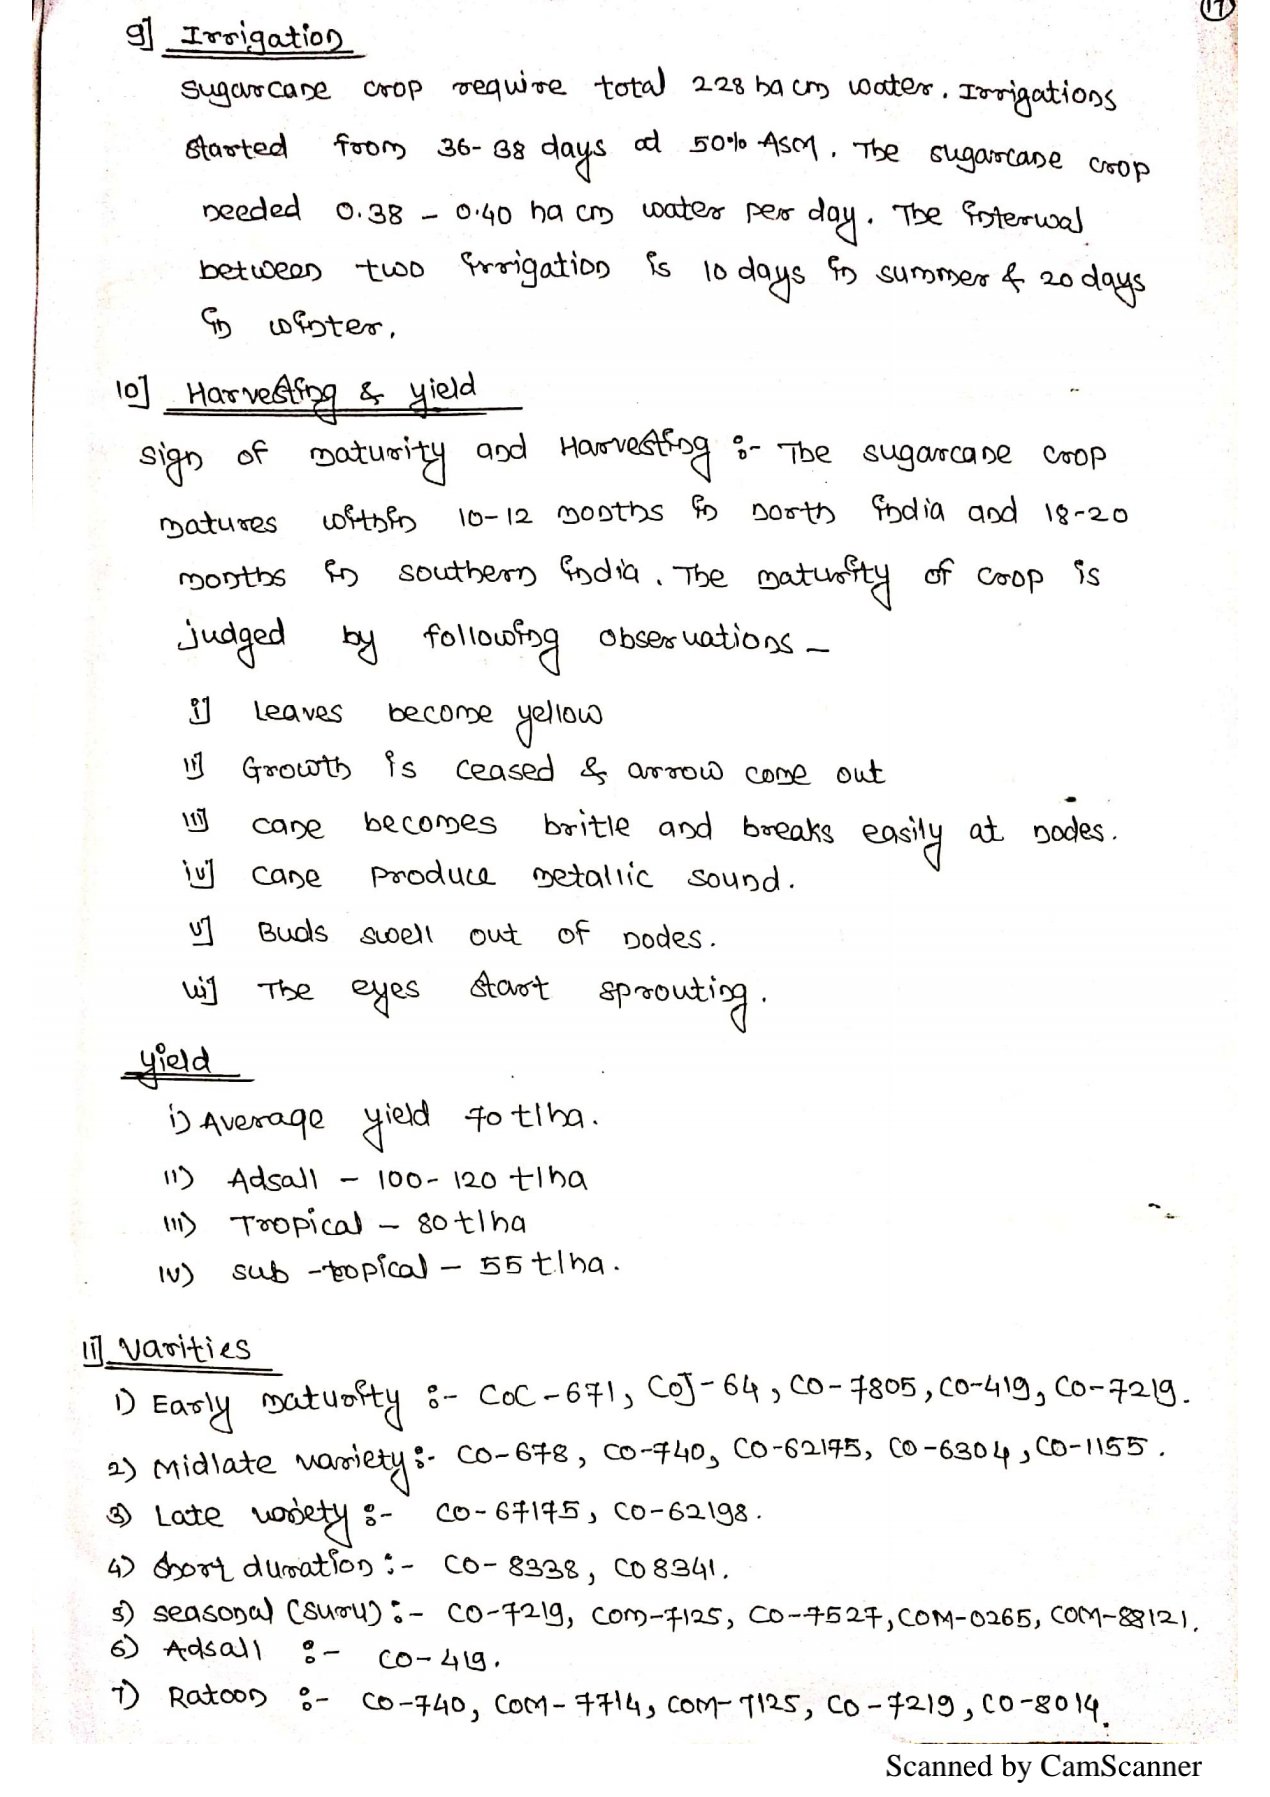 17
9] Irrigation
sugarcane crop require total 228 ha cm water. Irrigations
started from 36-38 days at 50% ASM. The sugarcane crop
needed 0.38 - 0.40 ha cm water per day. The interval
between two irrigation is 10 days in summer & 20 days
in winter.
10] Harvesting & yield
sign of maturity and Harvesting :- The sugarcane crop
matures within 10-12 months in north india and 18-20
months in southern india. The maturity of crop is
judged by following observations -
i] Leaves become yellow
ii] Growth is ceased & arrow come out
iii] cane becomes britle and breaks easily at nodes.
iv] cane produce metallic sound.
v] Buds swell out of nodes.
vi] The eyes start sprouting.
yield
i) Average yield 70 t/ha.
ii) Adsali - 100-120 t/ha
iii) Tropical - 80 t/ha
iv) sub-tropical - 55 t/ha.
11] Varities
1) Early maturity :- COC-671, COJ-64, CO-7805, CO-419, CO-7219.
2) Midlate variety :- CO-678, CO-740, CO-62175, CO-6304, CO-1155.
3) Late variety :- CO-67175, CO-62198.
4) short duration :- CO-8338, CO 8341.
5) seasonal (suru) :- CO-7219, COM-7125, CO-7527, COM-0265, COM-88121.
6) Adsali :- CO-419.
7) Ratoon :- CO-740, COM-7714, COM-7125, CO-7219, CO-8014.
Scanned by CamScanner